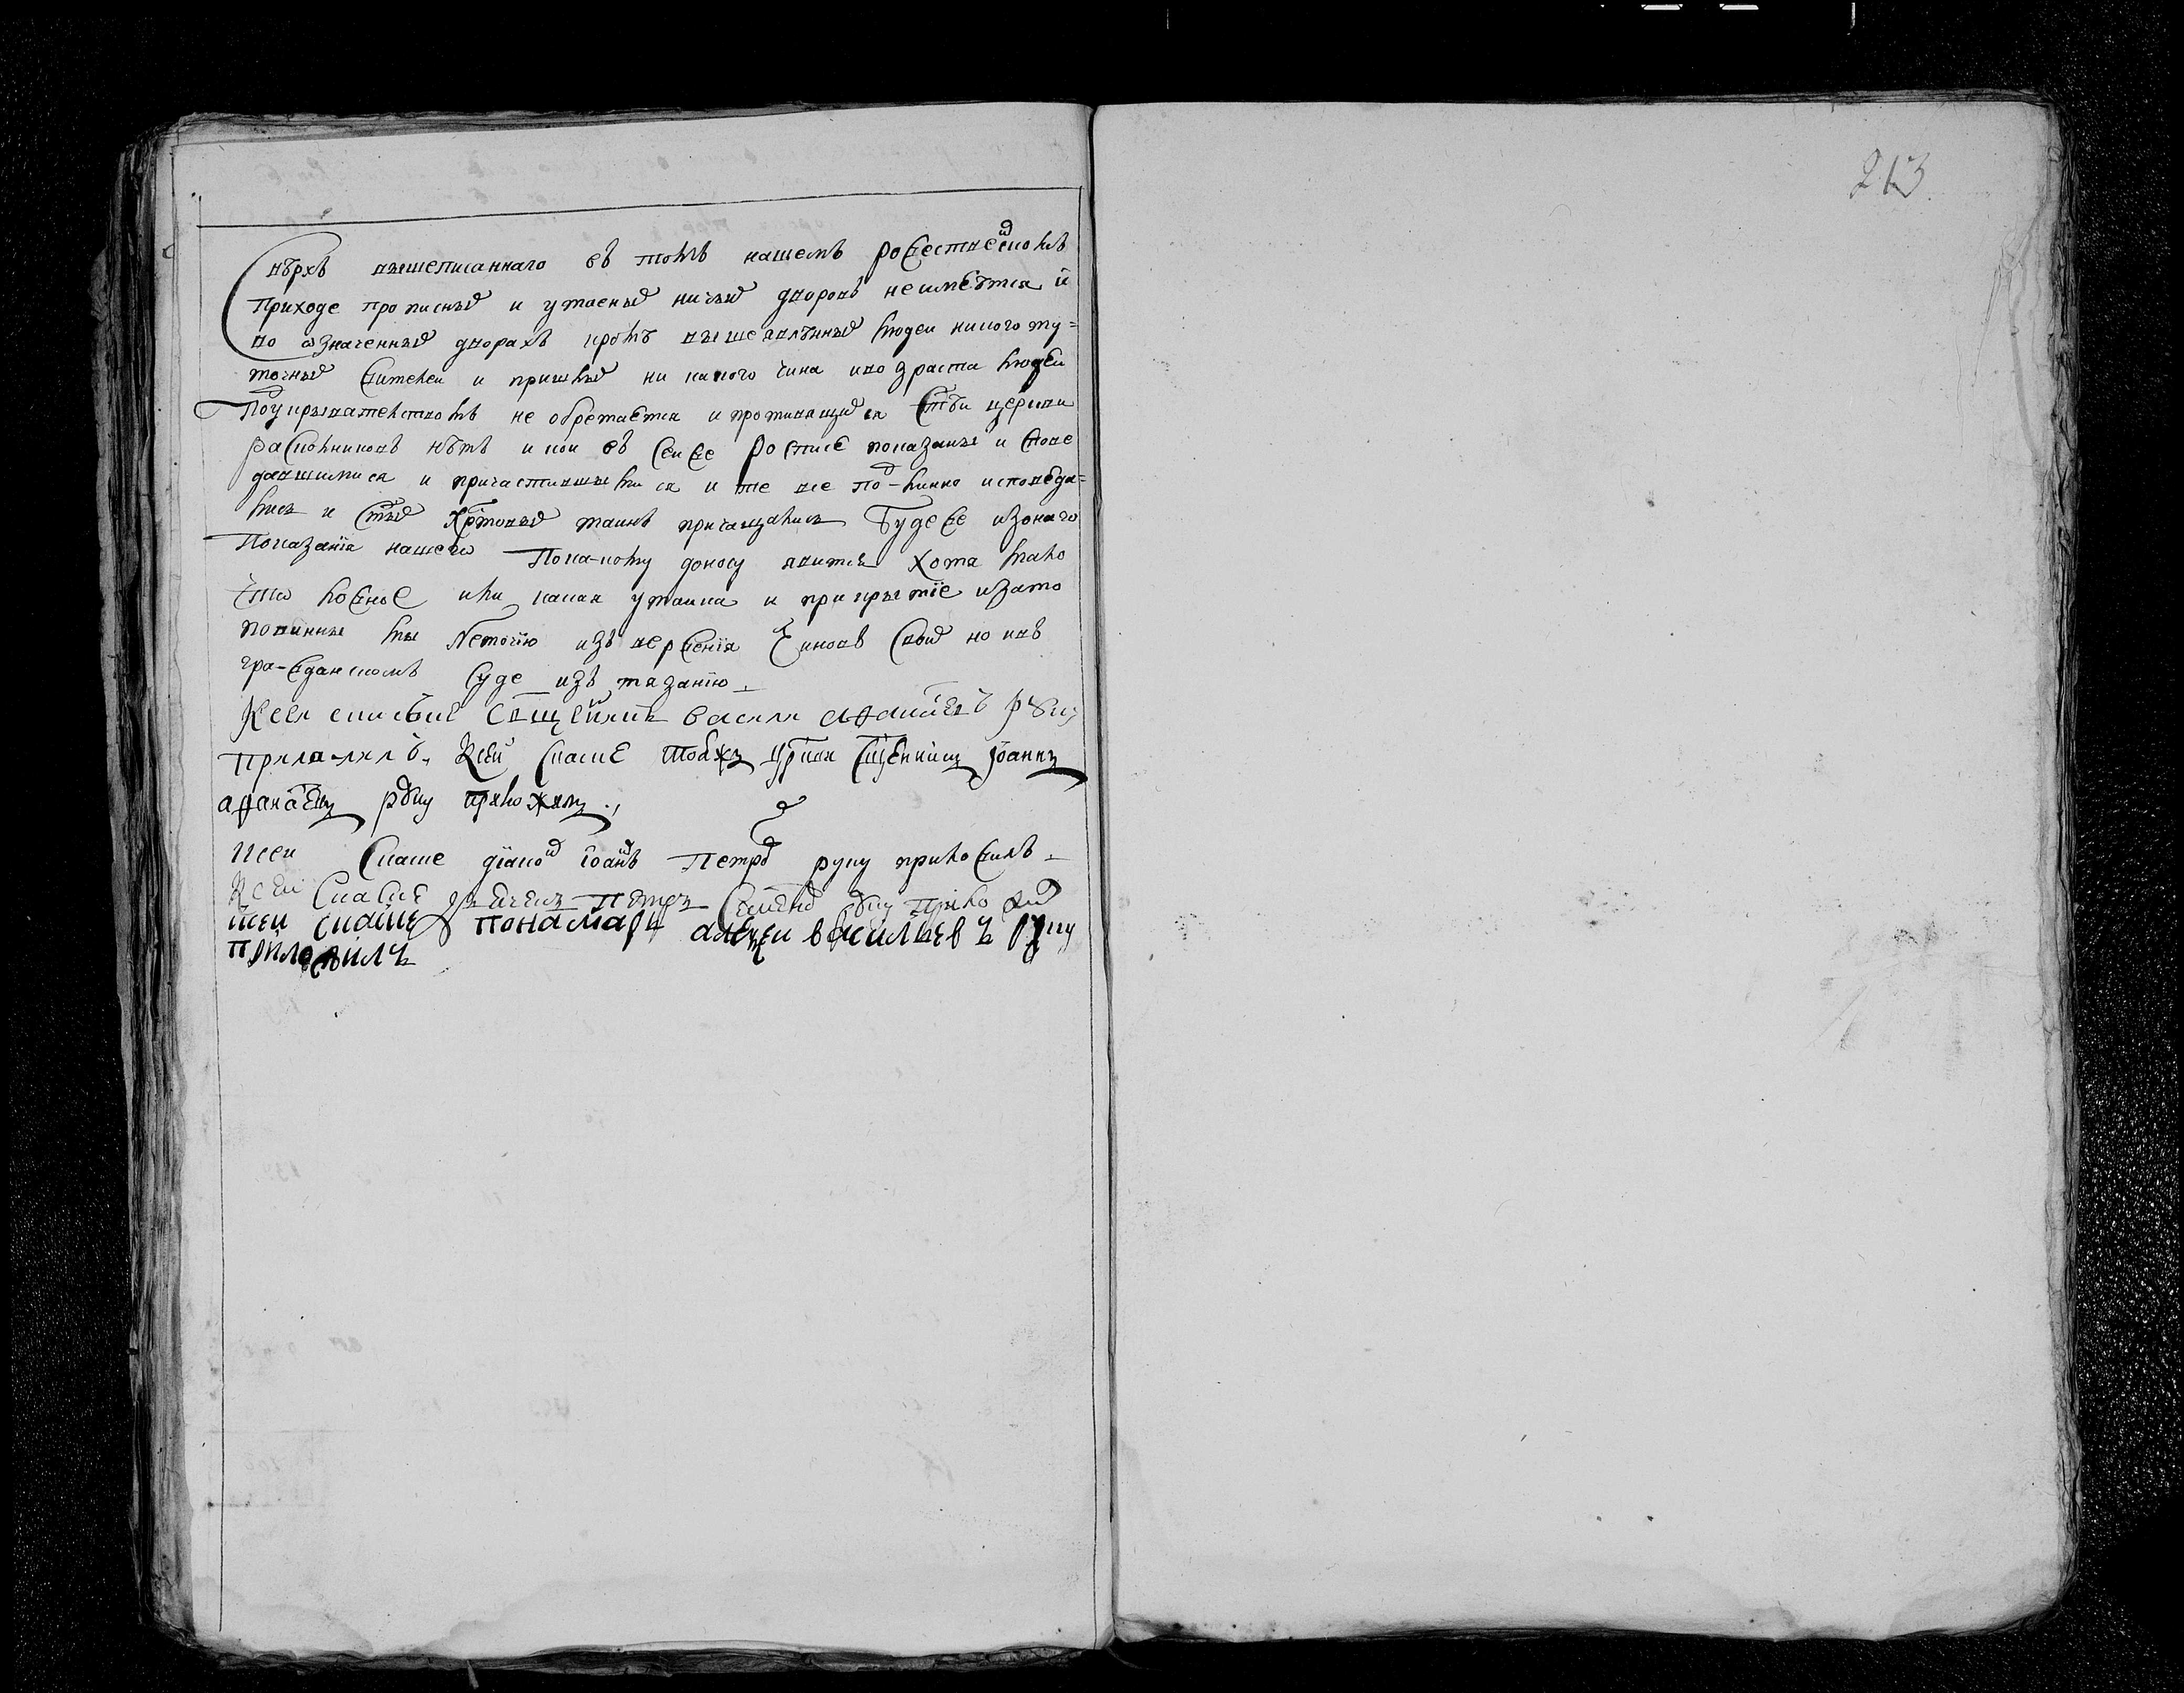 213
Сверхъ вышеписаннаго въ томъ нашемъ рожественскомъ
приходе прописныхъ и утаеныхъ ничьихъ дворовъ неимѣется и
во означенныхъ дворахъ кромѣ вышеявлѣнныхъ людеи никого ту=
точныхъ жителеи и пришлыхъ ни какого чина ивозраста людеи
Поукрывателствомъ не обретается и противящихся Стѣи церкви
расколниковъ нѣтъ и кои въ сеи же росписе показаны исповe
давшимися и причастившымися и те все подлинно исповеда=
лись и Стыхъ Хртовыхъ таинъ причащались Буде же изонаго
Показанїя нашего Покакому доносу явится Хотя мало
что ложное или какая утаика и прикрытїе изато
повинны мы Неточїю извержения чиновъ своихъ но ивъ
гражданскомъ Суде изтязанїю
Ксеи скаске Сщенникъ васили афанасевъ руку
приложилъ Ксеи Скаске тоежъ цркви Сщенникъ Iоаннъ
афанасевъ руку приложилъ
Ксеи Скаске дїаконъ Iоаннъ Петровъ руку приложилъ
Ксеи Скаске дьячекъ Петръ Семеновъ руку приложилъ
ксеи скаске понамарь алеѯеи васильевъ руку
приложилъ